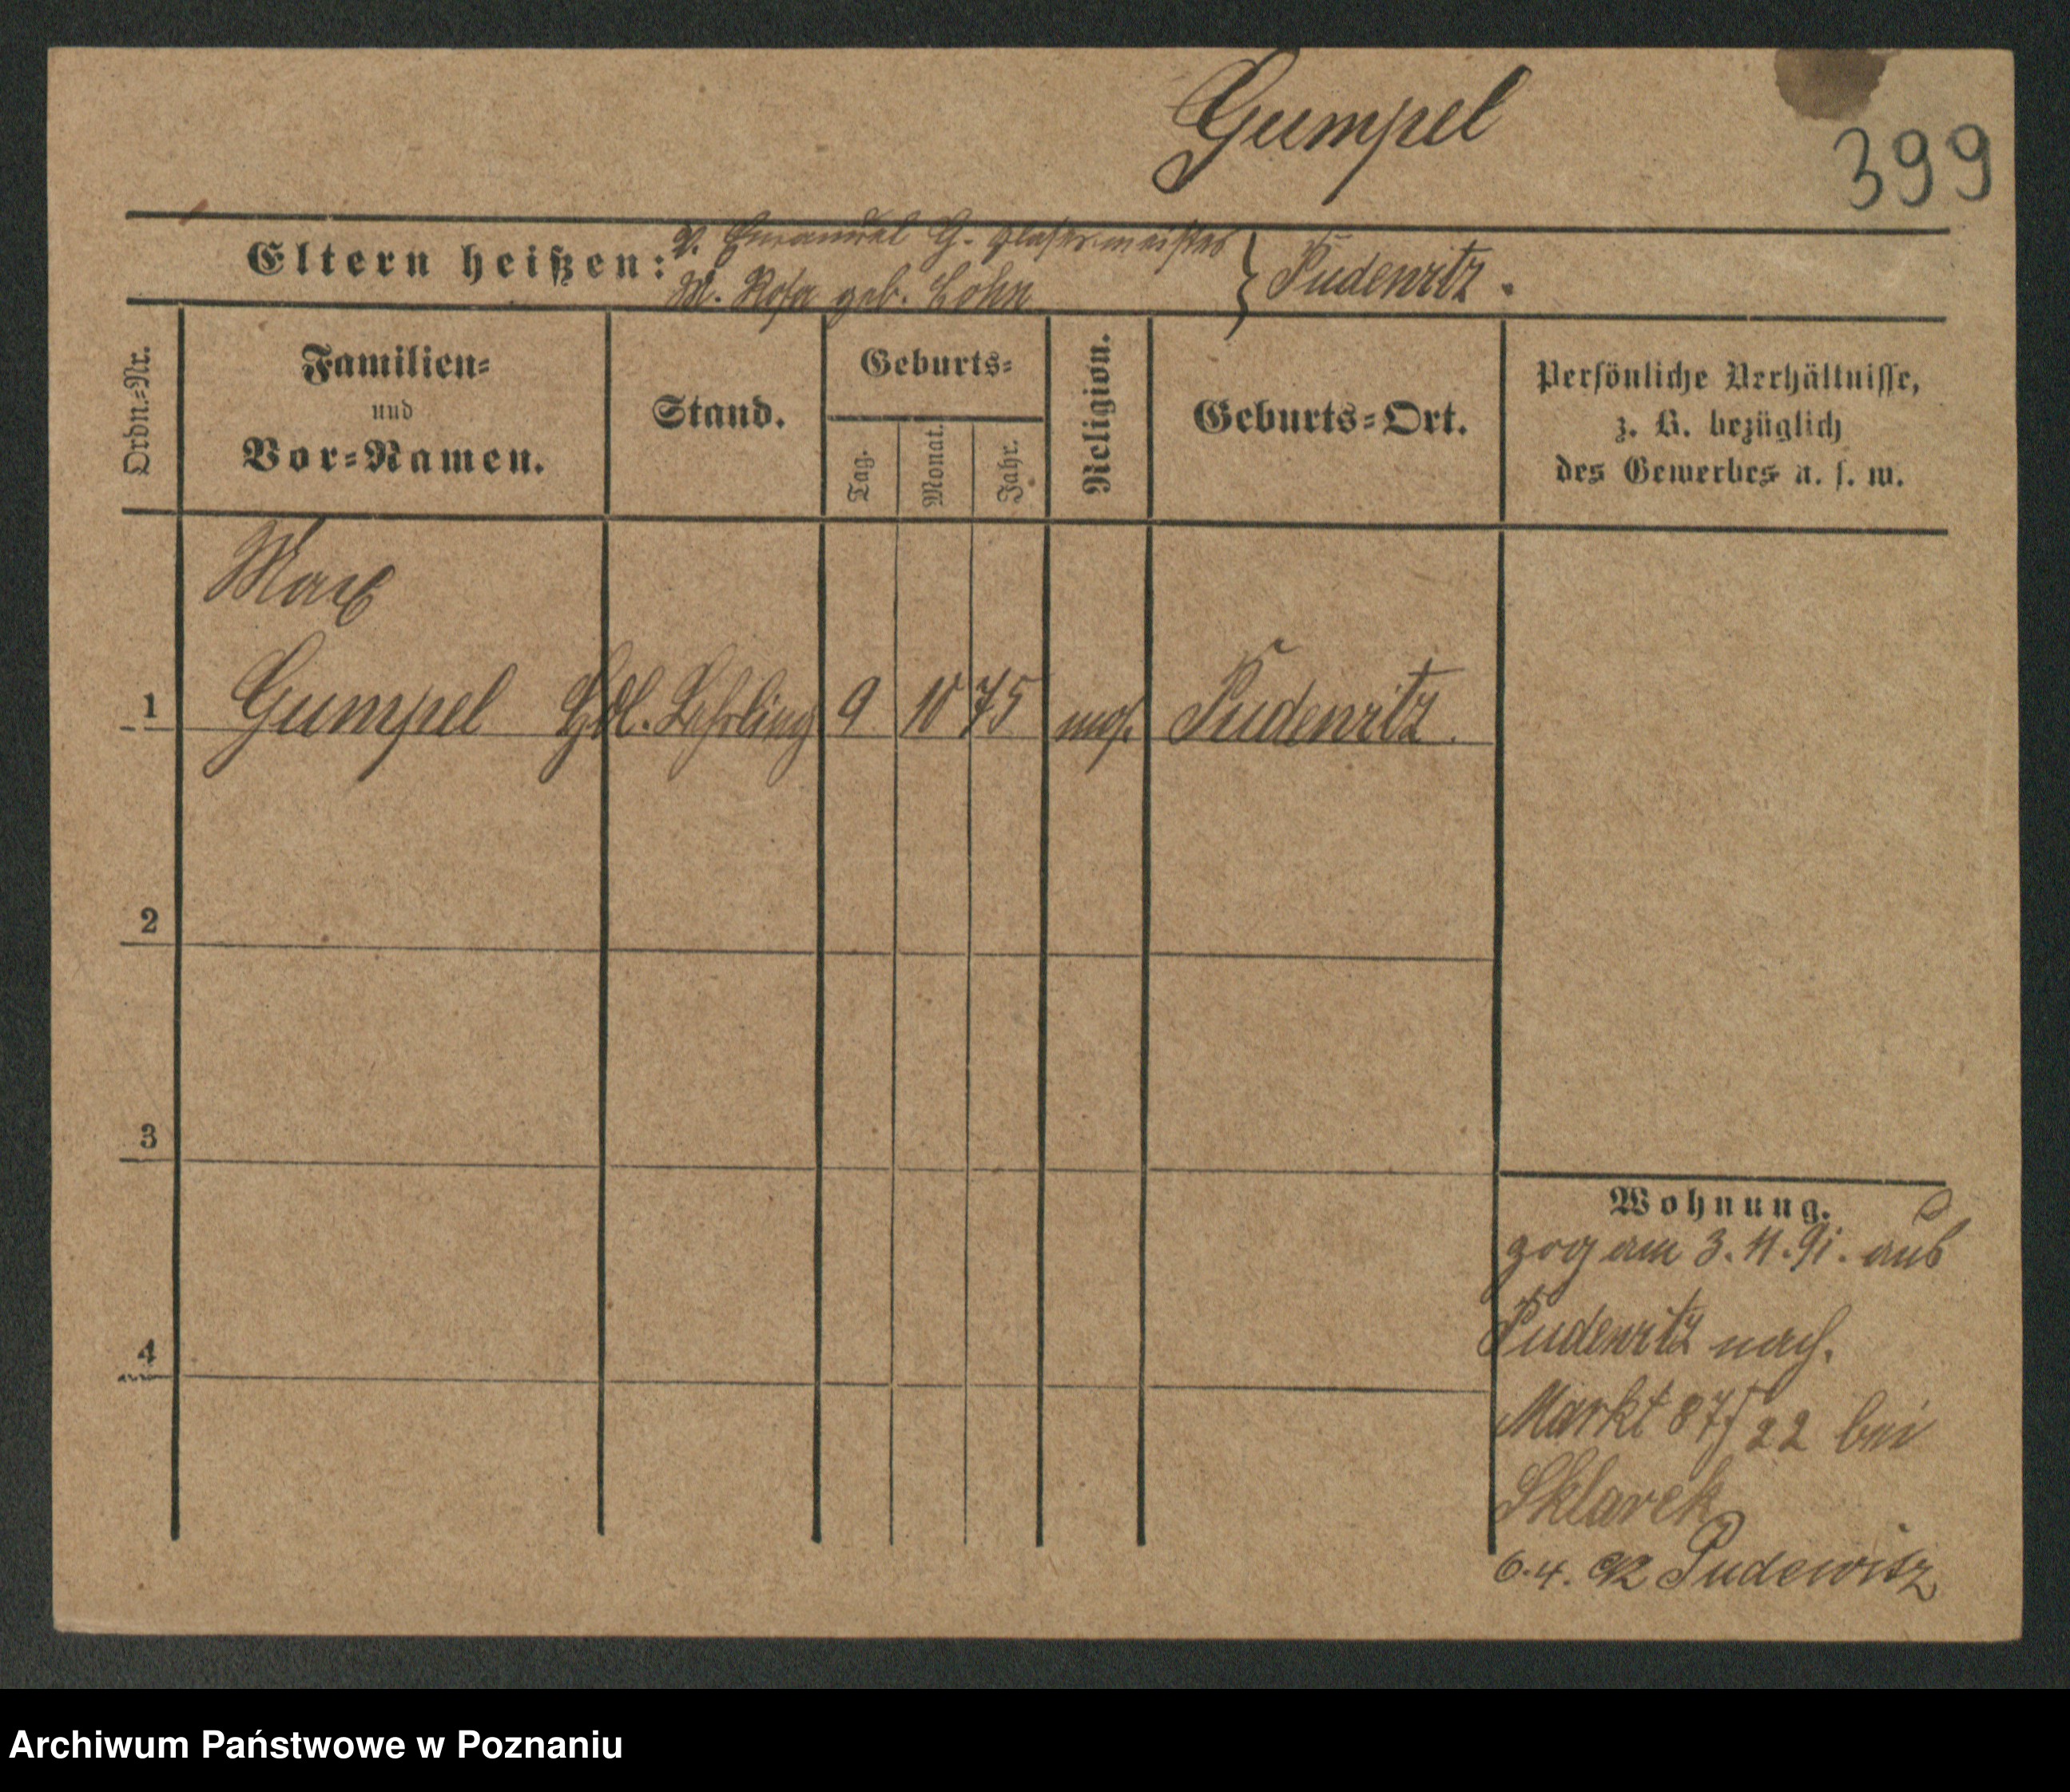 Gumpel
399
Eltern heißen: V. Emanuel G. Glasermeister
M. Rosa geb. Cohn } Pudewitz.
Ordn.-Nr.
Familien-
und
Vor-Namen.
Stand.
Geburts-
Tag. Monat. Jahr.
Religion.
Geburts-Ort.
Persönliche Verhältnisse,
z. B. bezüglich
des Gewerbes u. s. w.
Max
1 Gumpel Hdl. Lehrling 9 10 75 mos. Pudewitz.
2
3
4
Wohnung.
zog am 3. 11. 91. aus
Pudewitz nach.
Markt 87/22 bei
Sklarek
6.4. 92 Pudewitz
Archiwum Państwowe w Poznaniu